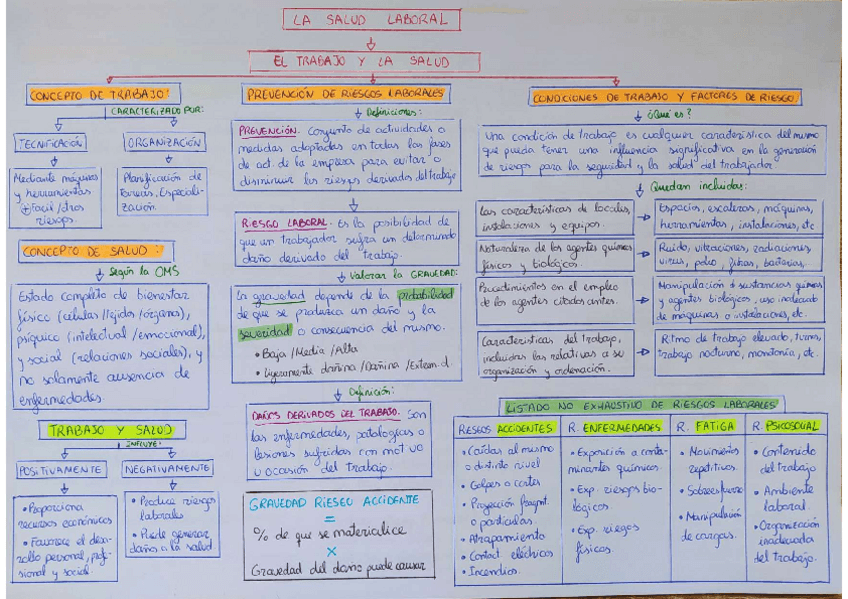 LA SALUD LABORAL
EL TRABAJO Y LA SALUD
CONCEPTO DE TRABAJO:
CARACTERIZADO POR:
TECNIFICACIÓN
Mediante máquinas
y herramientas
⊕ Fácil / otros
riesgos.
ORGANIZACIÓN
Planificación de
tareas, Especiali-
zación.
CONCEPTO DE SALUD:
Según la OMS
Estado completo de bienestar
físico (células / tejidos / órganos),
psíquico (intelectual / emocional),
y social (relaciones sociales), y
no solamente ausencia de
enfermedades.
TRABAJO Y SALUD
INFLUYE:
POSITIVAMENTE
• Proporciona
recursos económicos
• Favorece el desa-
rrollo personal, prof-
sional y social.
NEGATIVAMENTE
• Produce riesgos
laborales
• Puede generar
daños a la salud
PREVENCIÓN DE RIESGOS LABORALES
Definiciones:
PREVENCIÓN. Conjunto de actividades o
medidas adoptadas en todas las fases
de act. de la empresa para evitar o
disminuir los riesgos derivados del trabajo
RIESGO LABORAL. Es la posibilidad de
que un trabajador sufra un determinado
daño derivado del trabajo.
Valorar la GRAVEDAD:
La gravedad depende de la probabilidad
de que se produzca un daño y la
severidad o consecuencia del mismo.
• Baja / Media / Alta
• Ligeramente dañina / Dañina / Extrem. d.
Definición:
DAÑOS DERIVADOS DEL TRABAJO. Son
las enfermedades, patologías o
lesiones sufridas con motivo
u ocasión del trabajo.
GRAVEDAD RIESGO ACCIDENTE
=
% de que se materialice
×
Gravedad del daño puede causar
CONDICIONES DE TRABAJO Y FACTORES DE RIESGO:
¿Qué es?
Una condición de trabajo es cualquier característica del mismo
que pueda tener una influencia significativa en la generación
de riesgo para la seguridad y la salud del trabajador.
Quedan incluidas:
Las características de locales,
instalaciones y equipos.
Espacios, escaleras, máquinas,
herramientas, instalaciones, etc
Naturaleza de los agentes químicos
físicos y biológicos.
Ruido, vibraciones, radiaciones,
virus, polvo, fibras, bacterias,
Procedimientos en el empleo
de los agentes citados antes.
Manipulación d sustancias químicas
y agentes biológicos, uso inadecuado
de máquinas o instalaciones, etc.
Características del trabajo,
incluidas las relativas a su
organización y ordenación.
Ritmo de trabajo elevado, turnos,
trabajo nocturno, monotonía, etc.
LISTADO NO EXHAUSTIVO DE RIESGOS LABORALES
RIESGOS ACCIDENTES
• Caídas al mismo
o distinto nivel
• Golpes o cortes
• Proyección fragmt.
o partículas,
• Atrapamiento
• Contact eléctricos
• Incendios.
R. ENFERMEDADES
• Exposición a conta-
minantes químicos.
• Exp. riesgos bio-
lógicos.
• Exp. riesgos
físicos.
R. FATIGA
• Movimientos
repetitivos.
• Sobreesfuerzo
• Manipulación
de cargas.
R. PSICOSOCIAL
• Contenido
del trabajo
• Ambiente
laboral.
• Organización
inadecuada
del trabajo.